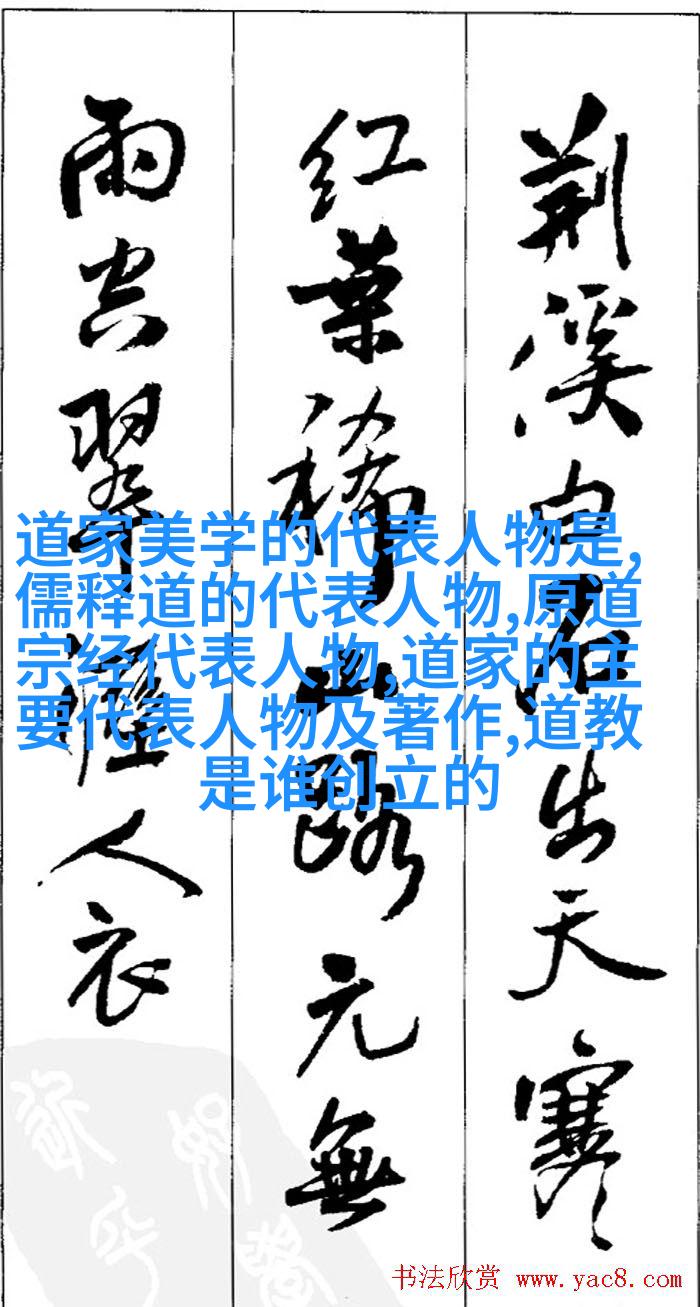 荆溪白石出天寒
红葉稀山路元無
雨空翠濕人衣
道家美学的代表人物是,
儒释道的代表人物,原道
宗经代表人物,道家的主
要代表人物及著作,道教
是谁创立的
书法欣赏 www.yac8.com